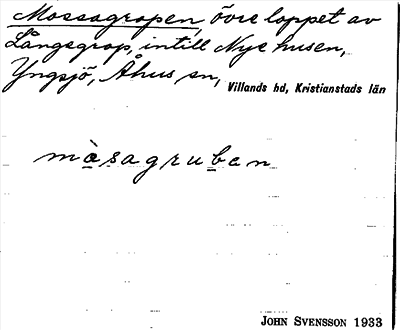 Mossagropen, övre loppet av
Långsgrop, intill Nye husen,
Yngsjö, Åhus sn, Villands hd, Kristianstads län
màsagruben
JOHN SVENSSON 1933